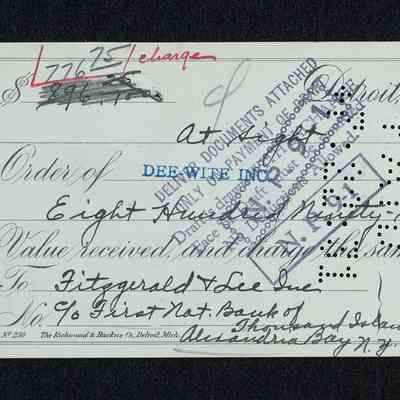 77625/charge
$ 896.
Detroit,
At Sight
Order of DEE-WITE INC
Eight Hundred Ninety-
Value received, and charge the sam
To Fitzgerald & Lee Inc
No. c/o First Nat. Bank of
Thousand Island
Alexandria Bay N.Y.
No 250 The Richmond & Backus Co., Detroit, Mich.
DELIVER DOCUMENTS ATTACHED
ONLY ON PAYMENT OF
N.P. 91